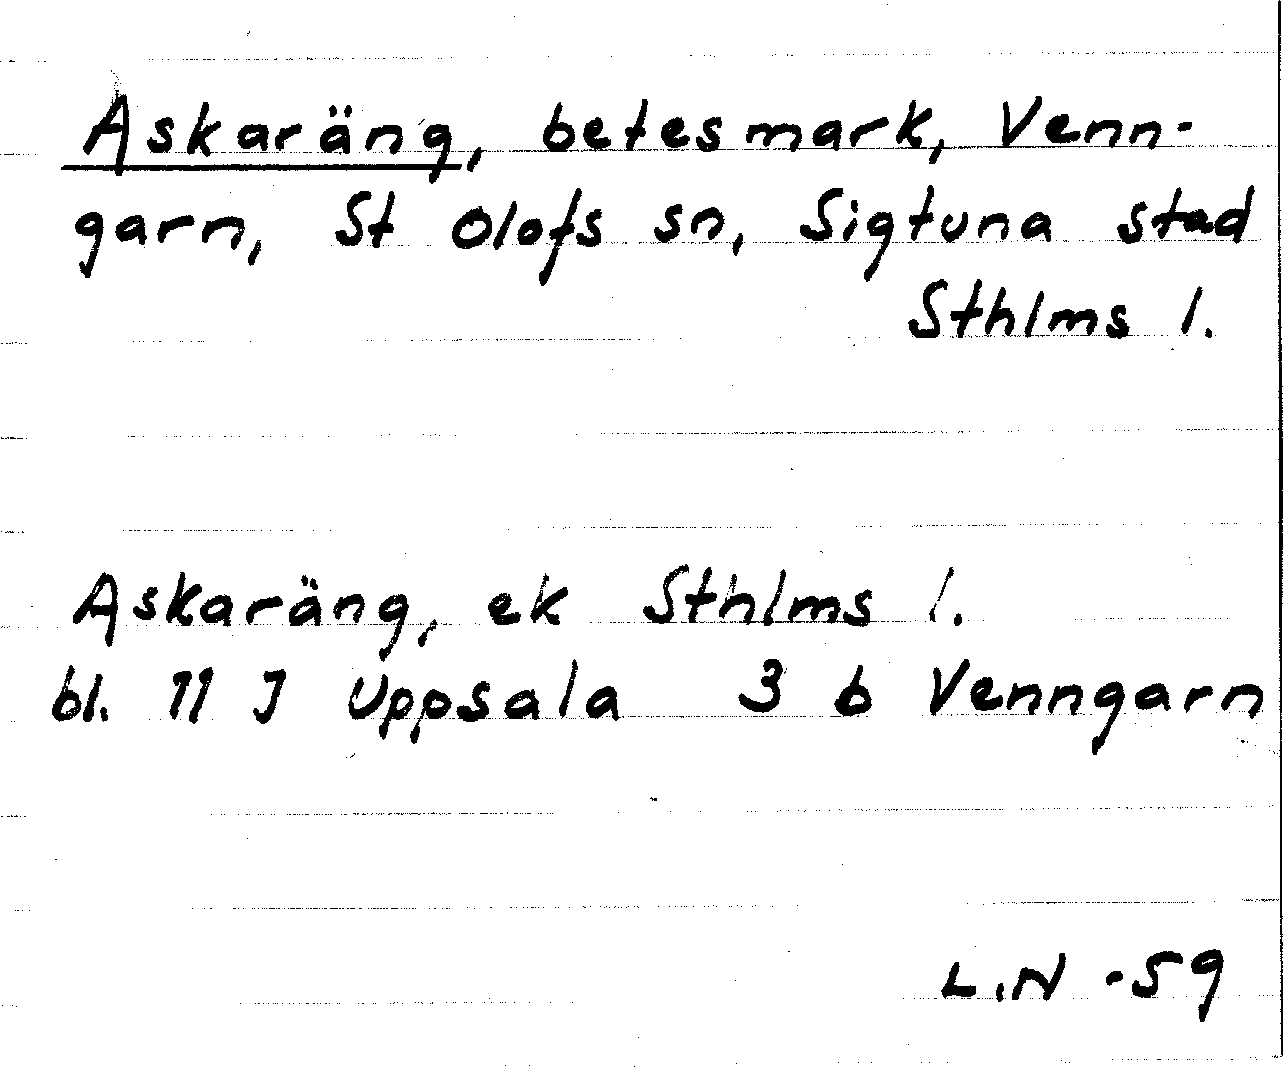 Askaräng, betesmark, Venn-
garn, St Olofs sn, Sigtuna stad
Sthlms l.
Askaräng, ek Sthlms l.
bl. 11 J Uppsala 3 b Venngarn
L.N -59